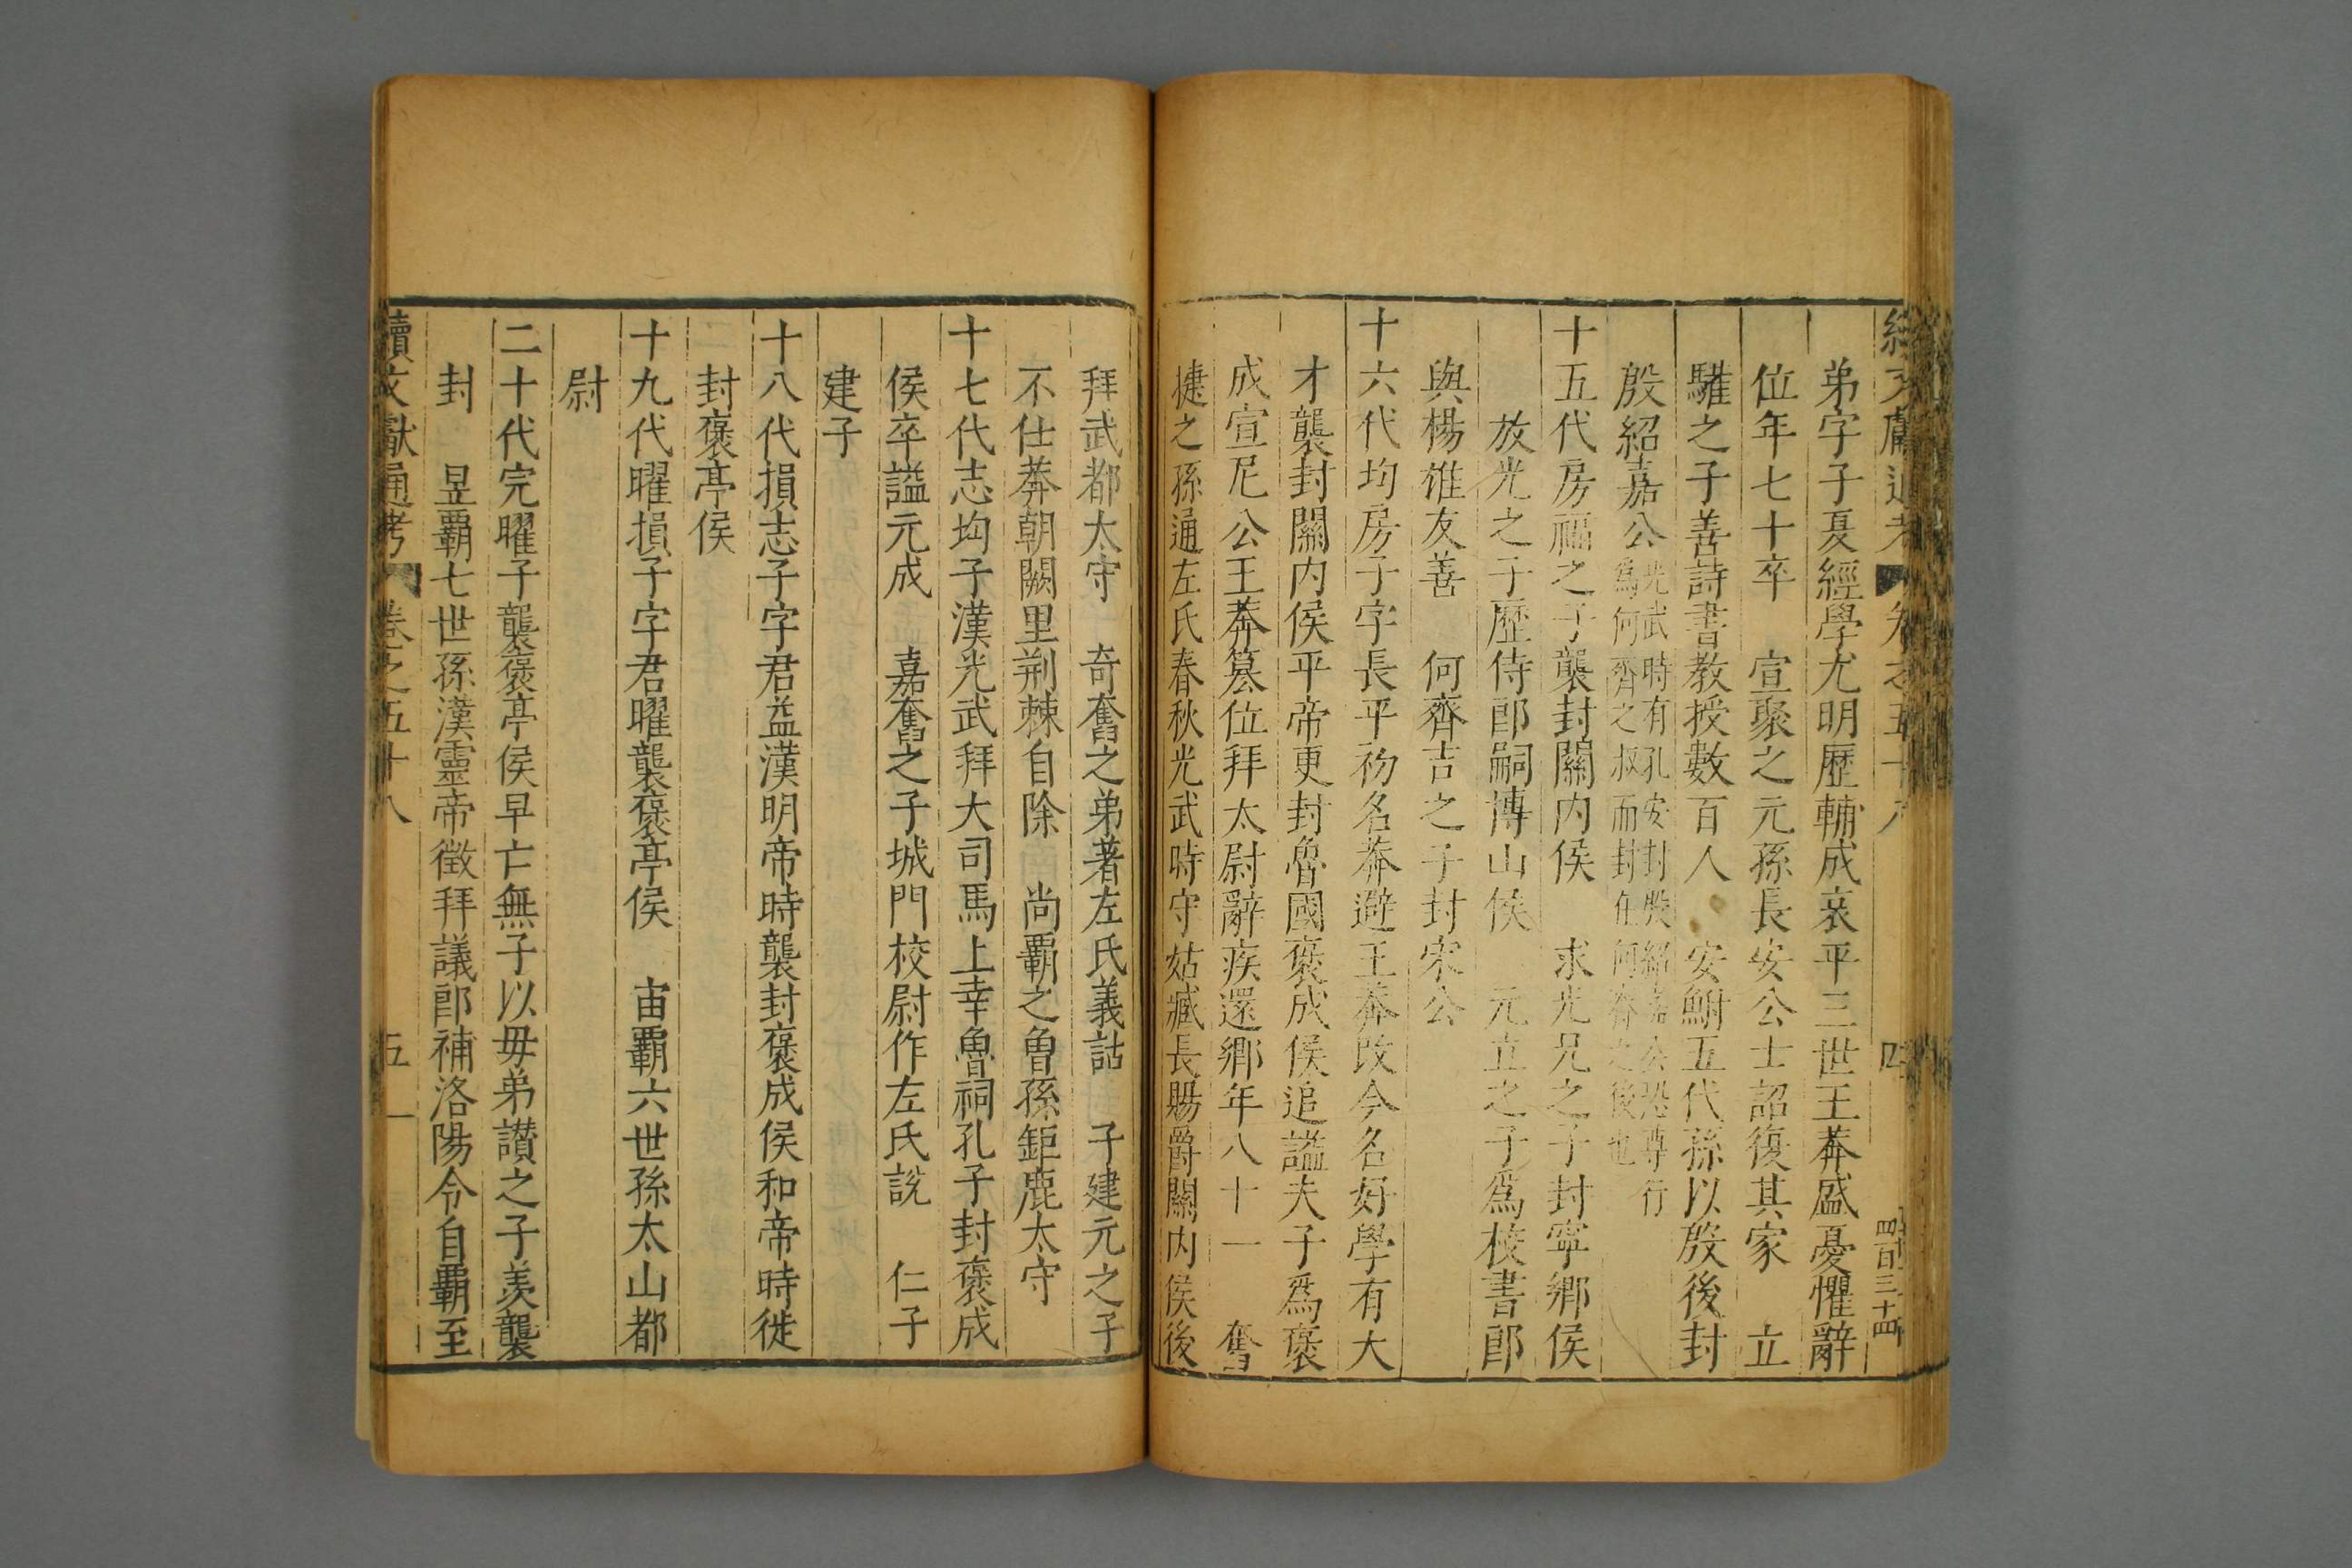 續文獻通考 卷之五十八 四 四百三十四
弟字子夏經學尤明歷輔成哀平三世王莽盛憂懼辭
位年七十卒 宣聚之元孫長安公士詔復其家 立
騅之子善詩書教授數百人 安鮒五代孫以殷後封
殷紹嘉公光武時有孔安封殷紹嘉公恐尊行
爲何齊之叔而封在何齊之後也
十五代房福之子襲封關內侯 求光兄之子封寧鄉侯
放光之子歷侍郎嗣博山侯 元立之子爲校書郎
與楊雄友善 何齊吉之子封宋公
十六代均房子字長平初名莽避王莽改今名好學有大
才襲封關內侯平帝更封魯國褒成侯追謚夫子爲褒
成宣尼公王莽篡位拜太尉辭疾還鄉年八十一 奮
捷之孫通左氏春秋光武時守姑臧長賜爵關內侯後
拜武都太守 奇奮之弟著左氏義詁 子建元之子
不仕莽朝闕里荆棘自除 尚霸之曾孫鉅鹿太守
十七代志均子漢光武拜大司馬上幸魯祠孔子封褒成
侯卒謚元成 嘉奮之子城門校尉作左氏說 仁子
建子
十八代損志子字君益漢明帝時襲封褒成侯和帝時徙
封褒亭侯
十九代曜損子字君曜襲褒亭侯 宙霸六世孫太山都
尉
二十代完曜子襲褒亭侯早亡無子以毋弟讃之子羨襲
封 昱霸七世孫漢靈帝徵拜議郎補洛陽令自霸至
續文獻通考 卷之五十八 五 一